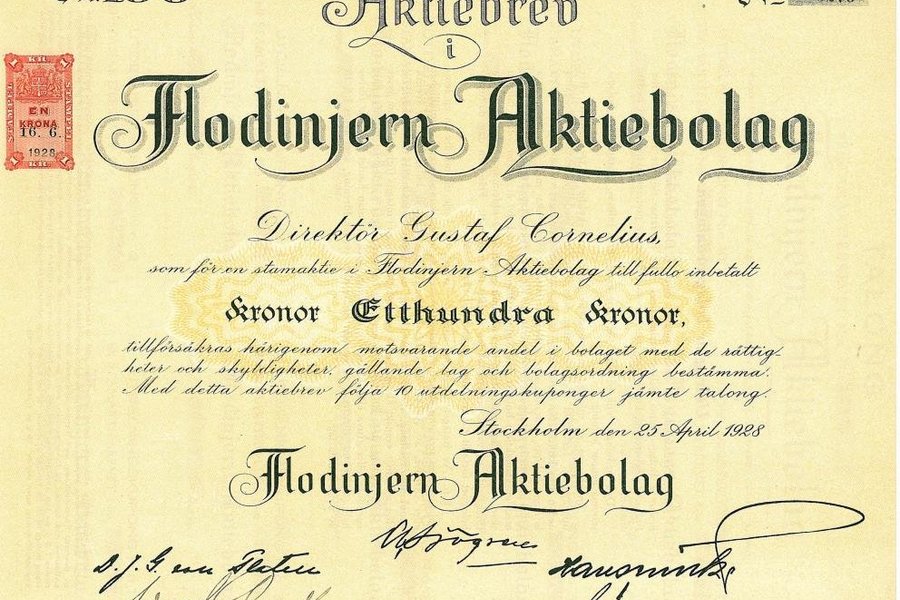 Aktiebrev
i
Flodinjern Aktiebolag
EN
KRONA
16. 6.
1928
Direktör Gustaf Cornelius,
som för en stamaktie i Flodinjern Aktiebolag till fullo inbetalt
Kronor Etthundra Kronor,
tillförsäkras härigenom motsvarande andel i bolaget med de rättig-
heter och skyldigheter, gällande lag och bolagsordning bestämma.
Med detta aktiebrev följa 10 utdelningskuponger jämte talong.
Stockholm den 25 April 1928
Flodinjern Aktiebolag
D. J. G. von Platen